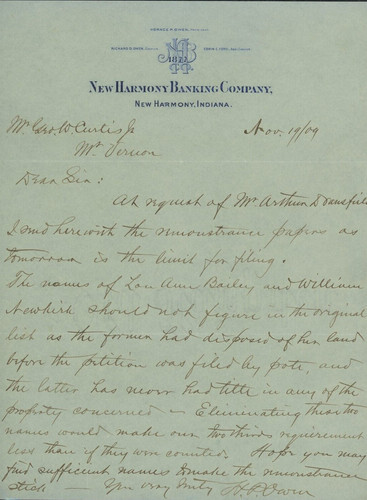 HORACE P. OWEN, PRESIDENT
NHB
1877
NEW HARMONY BANKING COMPANY,
NEW HARMONY, INDIANA.
Mr Geo. W. Curtis Jr Nov. 19/09
Mt Vernon
Dear Sir:
At request of Mr. Arthur Dransfield
I send herewith the remonstrance papers as
tomorrow is the limit for filing.
The names of Lou Ann Bailey and William
Newkirk should not figure in the original
list as the former had disposed of her land
before the petition was filed by pote, and
the latter has never had title in any of the
property concerned — Eliminating these two
names would make our two thirds requirement
less than if they were counted. Hope you may
find sufficient names to make the remonstrance
stick Yrs very truly H. P. Owen